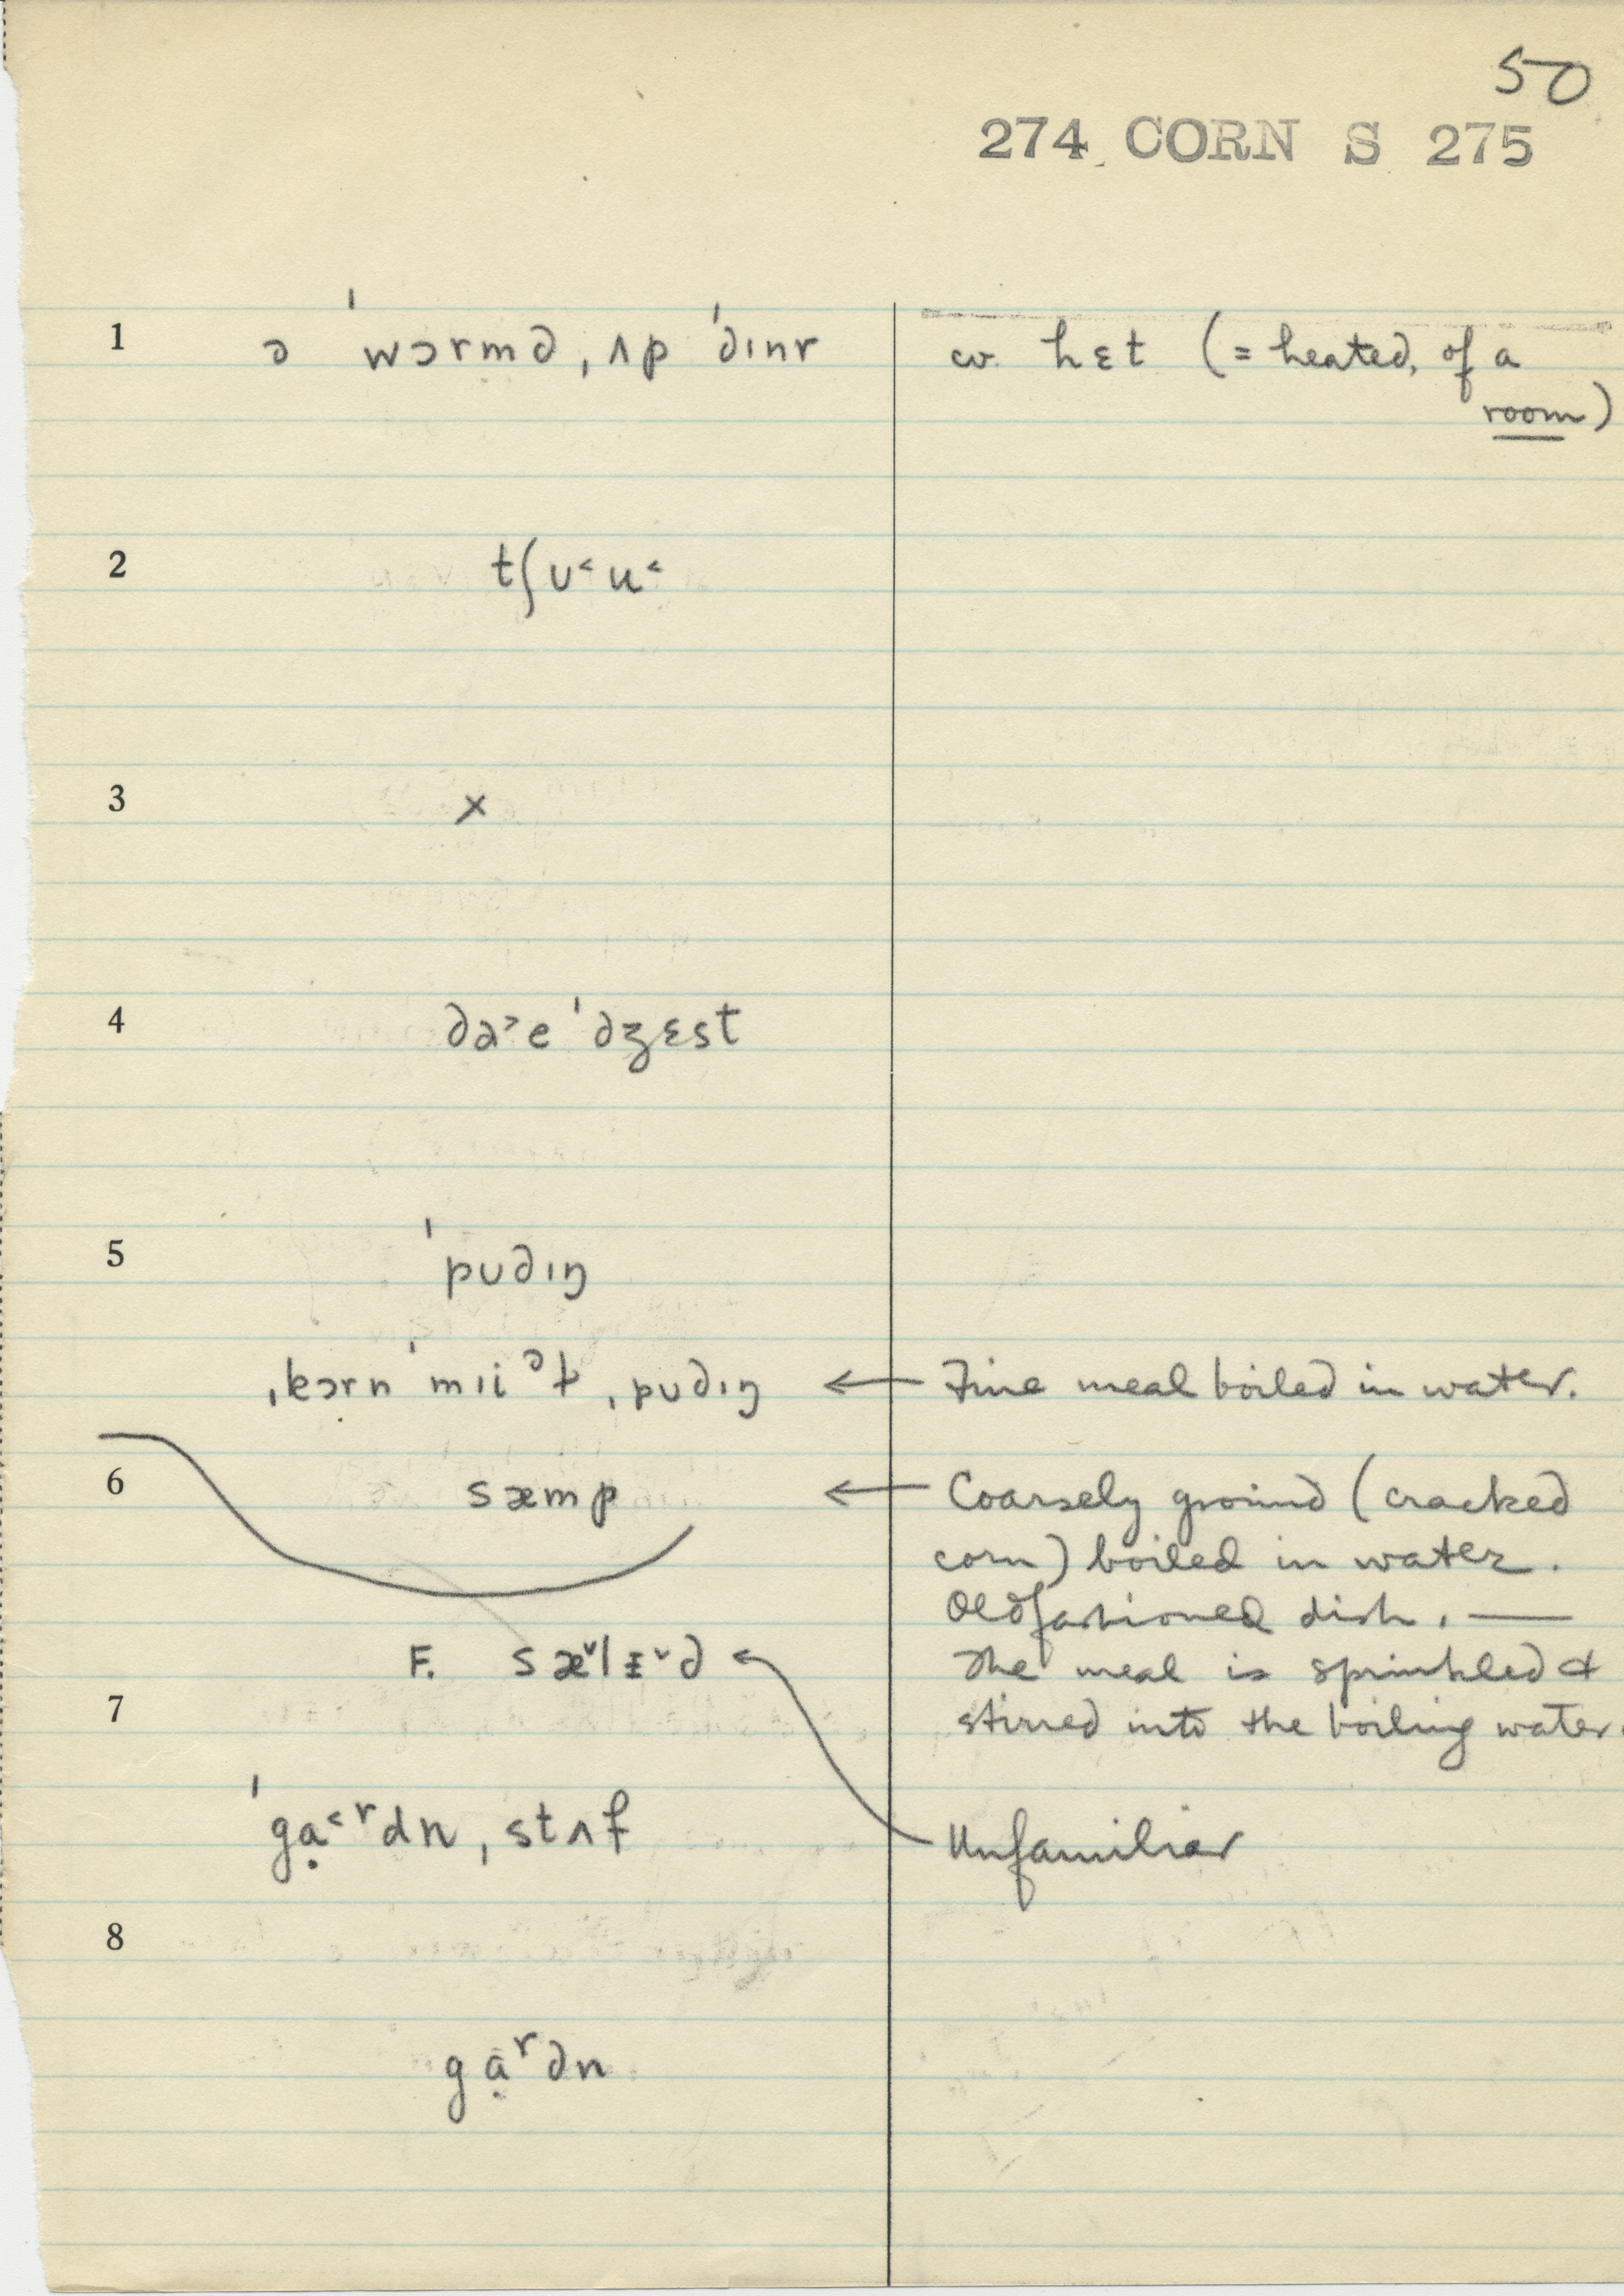 50
274 CORN S 275
1 ə ˈwɔrmd ˌʌp ˈdɪnr cv. hɛt (= heated, of a
room)
2 tʃʊ˂u˂
3 ×
4 da˃e ˈdʒɛst
5 ˈpʊdɪŋ
ˌkɔrn ˈmɪiᵊɫ ˌpʊdɪŋ ← Fine meal boiled in water.
6 sæmp ← Coarsely ground (cracked
corn) boiled in water.
Oldfashioned dish. —
F. sæ˅lɪ˅d The meal is sprinkled &
7 stirred into the boiling water.
ˈgạ˂ʳdn ˌstʌf Unfamiliar
8
gạʳdn